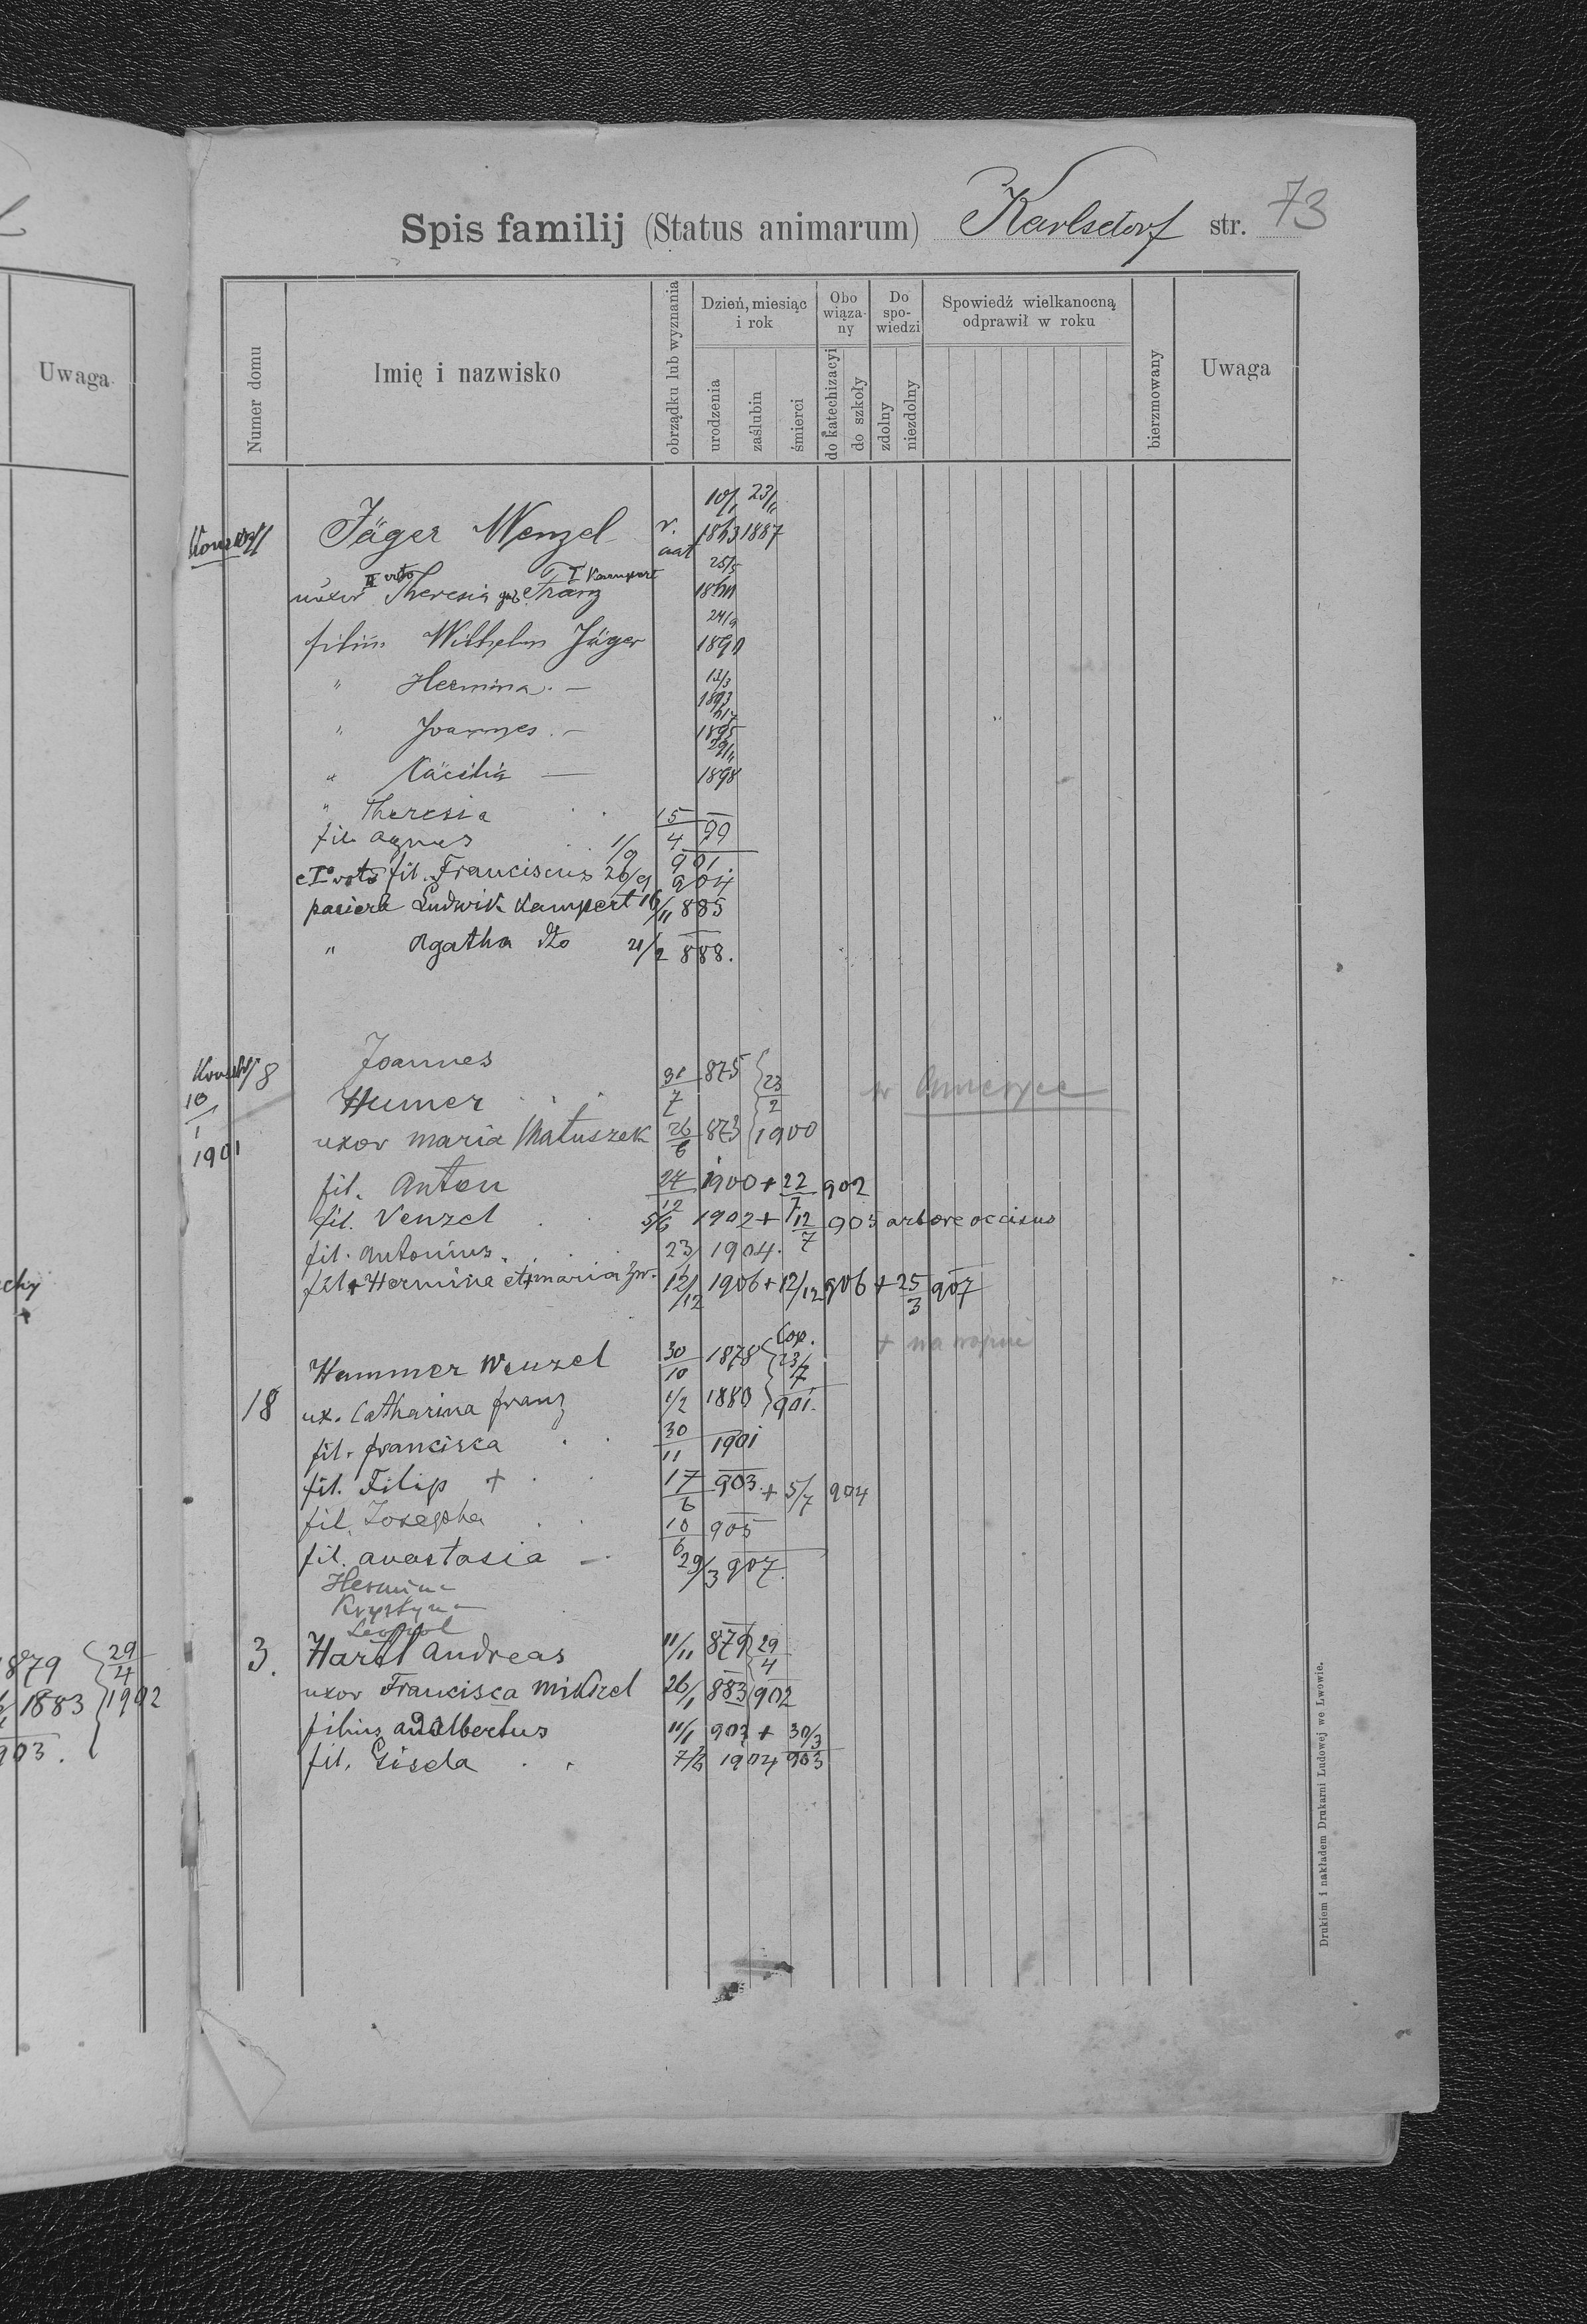 Spis familij (Status animarum) Karlsdorf str. 73
Uwaga
Numer domu
Imię i nazwisko
obrządku lub wyznania
Dzień, miesiąc i rok
urodzenia
zaślubin
śmierci
Obowiązany
do katechizacyi
do szkoły
Do spowiedzi
zdolny
niezdolny
Spowiedź wielkanocną odprawił w roku
bierzmowany
Uwaga
10/1 23/11
Jäger Wenzel r. 1863 1887
25/5
uxor II voto Theresia geb. Franz I Kampert
24/9
filii Wilhelm Jäger 1890
12/3
" Hermina — 1893
" Joannes — 1895
29/11
" Cäcilia — 1898
" Theresia 15/4 99
fil. Agnes 1/9 901.
fil. Franciscus 26/9 904
e I voto pasierb Ludwik Kampert 16/11 885
" Agatha dto 21/2 888.
8 Joannes
Humer 31/7 875 23/2 w Ameryce
10/1 1901
uxor Maria Matuszek 26/6 873 1900
fil. Anton 24/12 1900 + 22/7 902
fil. Venzel 5/6 1902 + 12/7 905 arbore occisus
fil. Antonius 23/1 1904.
fil. + Hermina et + Maria zw. 12/12 1906 + 12/12 906 + 25/3 907
Hammer Wenzel 30/10 1878 Cop. 23/7 + na wojnie
18 ux. Catharina Franz 1/2 1880 901.
fil. Francisca 30/11 1901
fil. Filip + 17/6 903. + 5/7 904
fil. Josepha 10/6 905
fil. Anastasia — 29/3 907.
Hermina
Krystyna
Leopol
3. Hartl Andreas 11/11 879 29/4
uxor Francisca Mikscl 26/1 883 902
filius Adalbertus 11/1 903 + 30/3 903
fil. Gisela 7/6 1904
879 29/4
1883 1902
903.
Drukiem i nakładem Drukarni Ludowej we Lwowie.